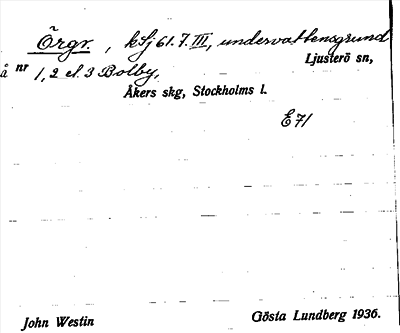 Örgr. , kSj 61.7.III, undervattensgrund
Ljusterö sn,
å nr 1, 2 el. 3 Bolby,
Åkers skg, Stockholms l.
E71
John Westin
Gösta Lundberg 1936.